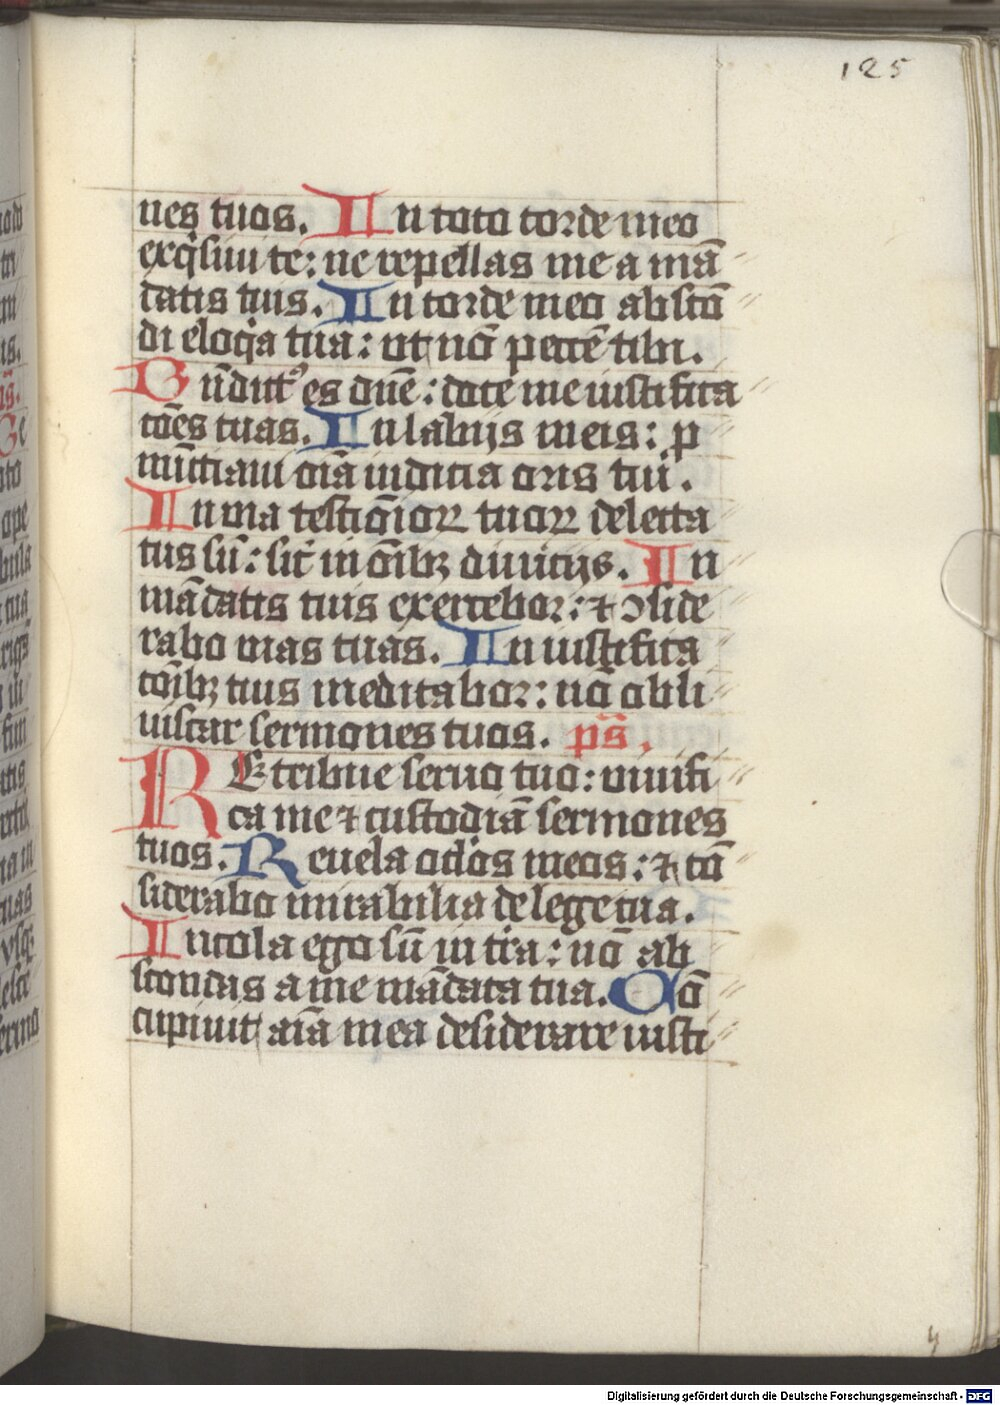 125
nes tuos. In toto corde meo
exq̇siui te: ne repellas me a mā
datis tuis. In corde meo abscō
di eloq̇a tua: ut nō peccē tibi.
Bn̄dict᷒ es dn̄e: doce me iustifica
cōēs tuas. In labijs meis: p
nūtiaui oīa iudicia oris tui.
In uia testiōioꝝ tuoꝝ delecta
tus sū: sic̄ in oībꝫ diuitijs. In
mādatis tuis exercebor: ⁊ ↄside
rabo uias tuas. In iustifica
cōibꝫ tuis meditabor: nō obli
uiscar sermones tuos. ps̄.
REtribue seruo tuo: uiuifi
ca me ⁊ custodiā sermones
tuos. Reuela oc̄los meos: ⁊ cō
siderabo mirabilia de lege tua.
Incola ego sū in tr̄a: nō ab
scondas a me mādata tua. Cō
cupiuit aīa mea desiderare iusti
Digitalisierung gefördert durch die Deutsche Forschungsgemeinschaft - DFG